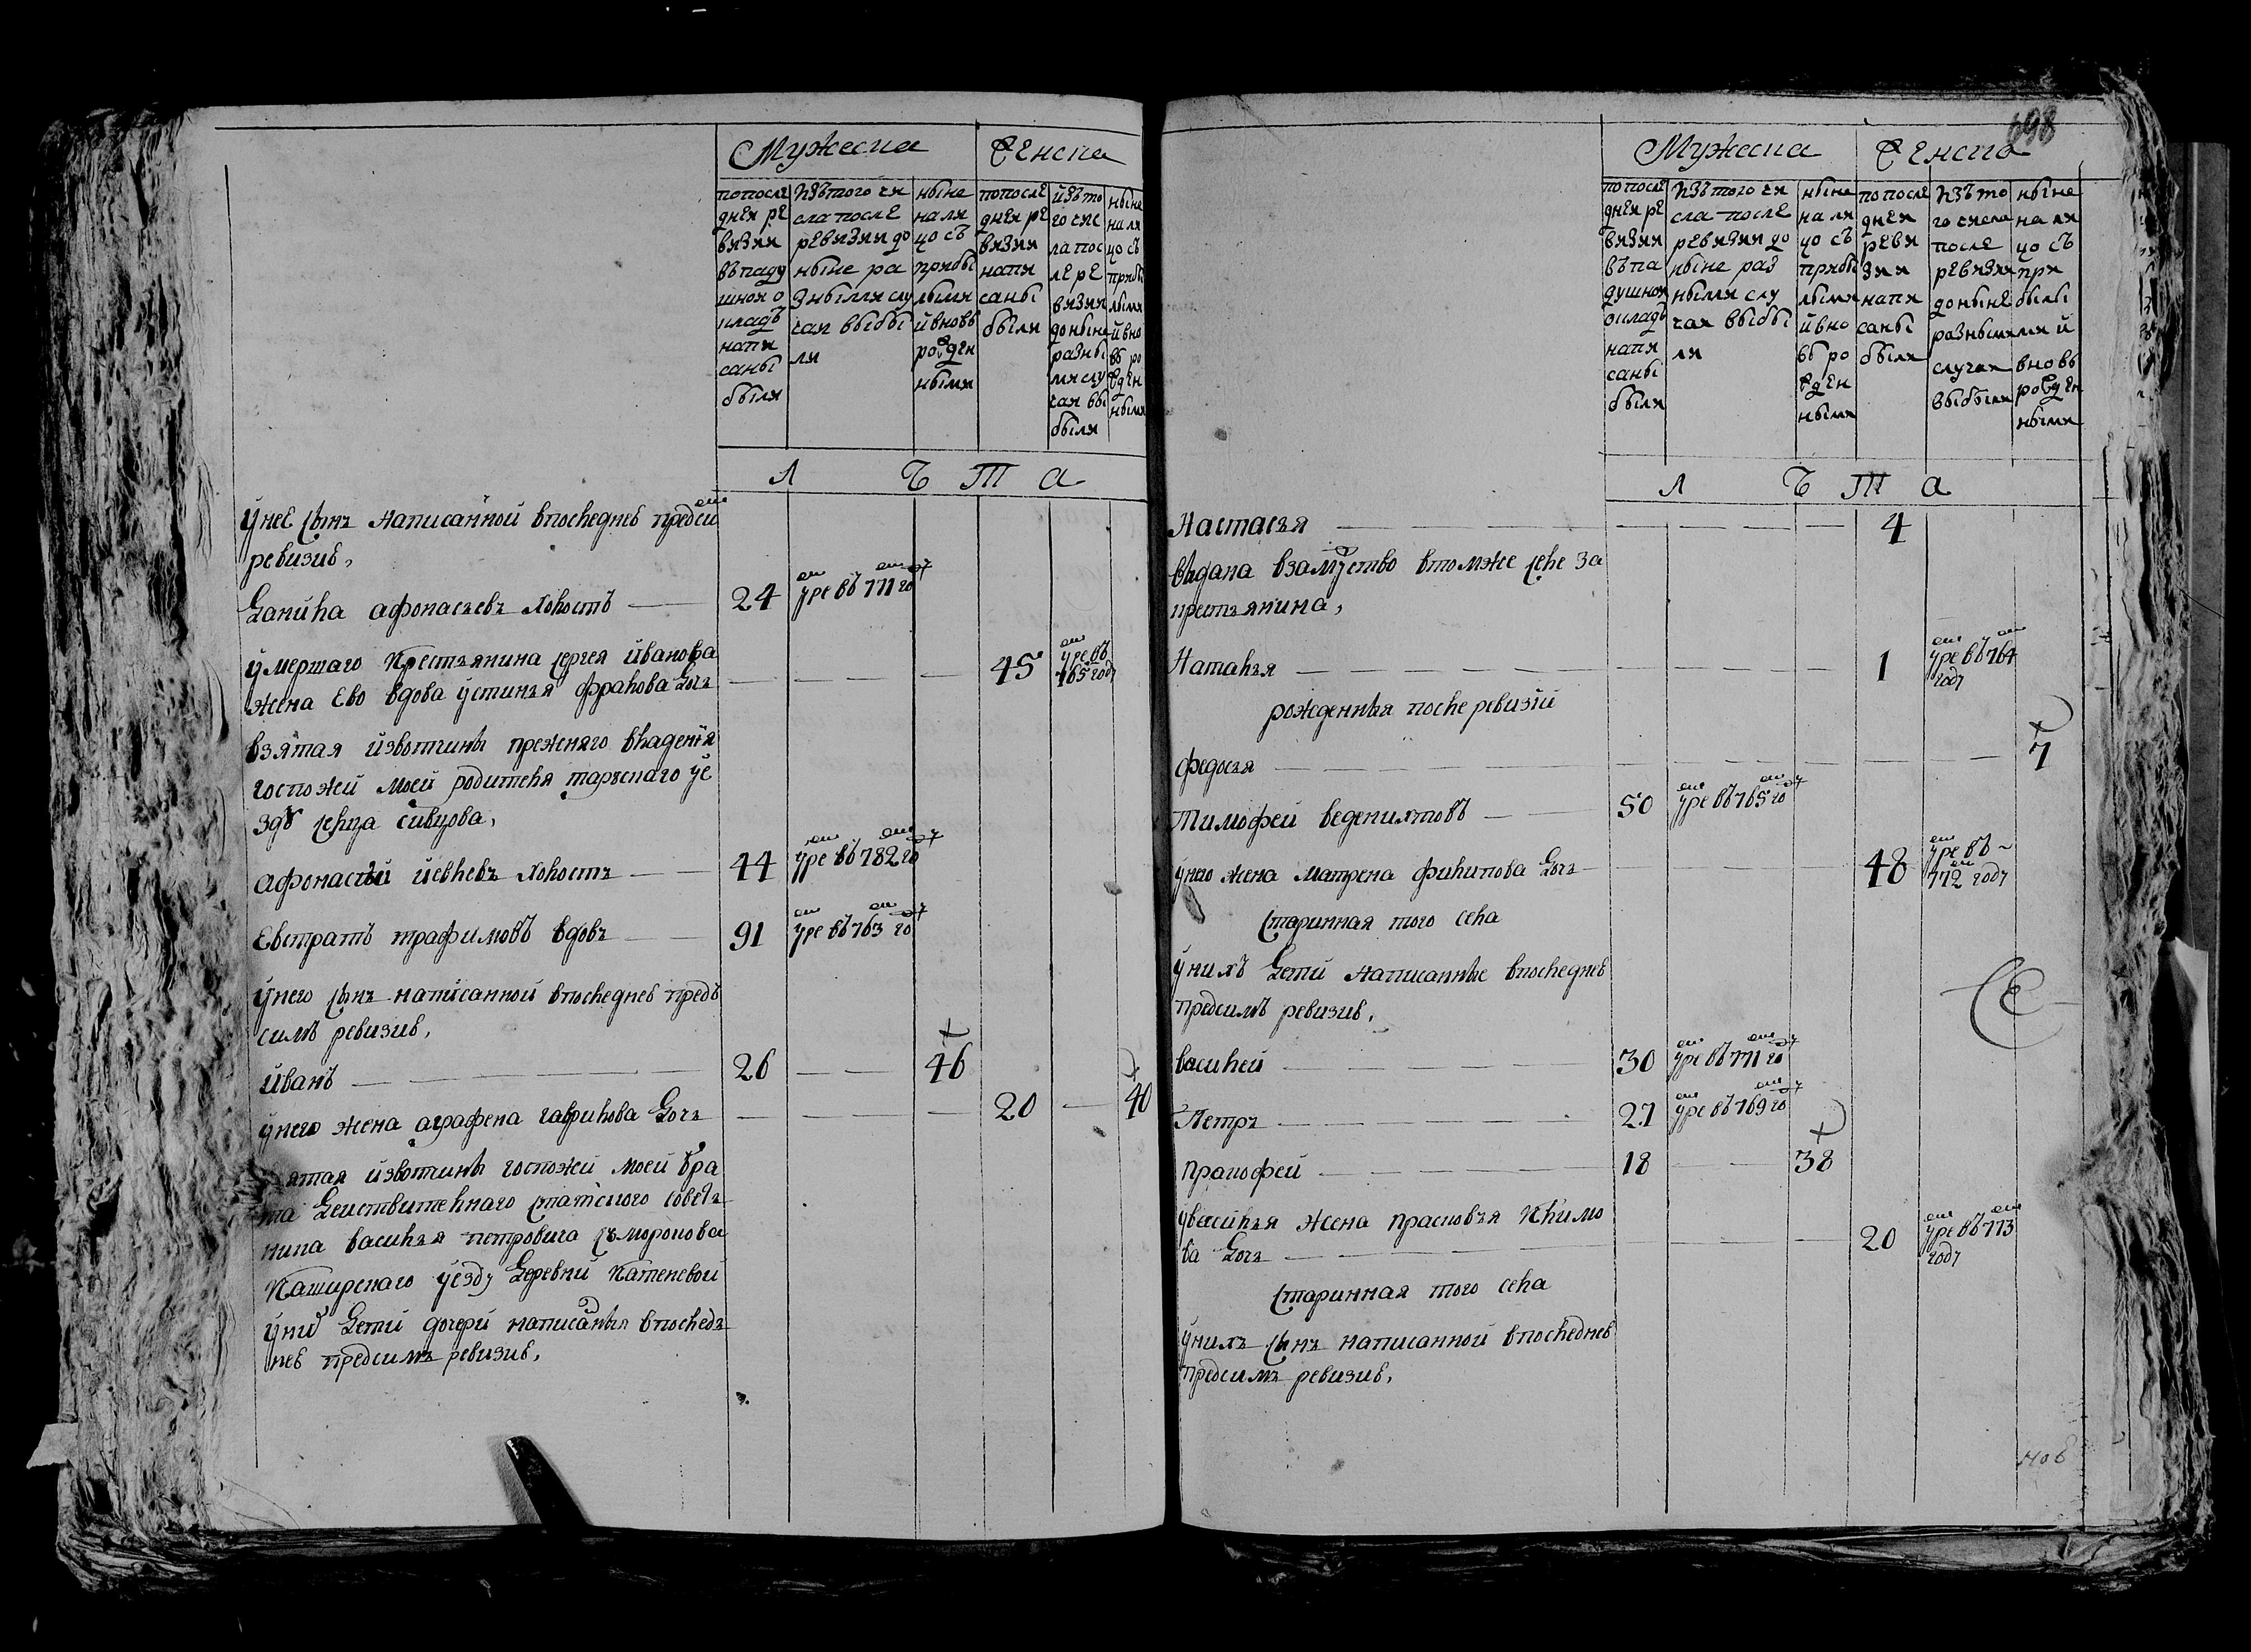 Мужеска Женска
по после дняя ревизия въ падушной окладъ написаны были
изъ того числа после ревизии до ныне разными случаи выбыли
ныне на лицо съ прибылыми и вновь рожденными
по после дняя ревизия написаны были
из того числа после ревизии до ныне разными случаи выбыли
ныне на лицо съ прибылыми и вновь рожденными
Л Ѣ Т А
у нее сынъ написанной впоследнеѣ предси
ревизиѣ,
Данила афонасьевъ холостъ 24 умре въ 771 году
умершаго крестьянина сергея иванова
жена ево вдова устинья фралова дочь 45 умре въ 765 году
взятая извотчины прежняго владения
госпожей моей родителя таруского уе
зда сельца сивцова,
афонасей иевлевъ холостъ 44 умре въ 782 году
Евстратъ трафимовъ вдовъ 91 умре въ 763 году
у него сынъ написанной впоследнеѣ предъ
симъ ревизиѣ,
иванъ 26 46
у него жена аграфена гаврилова дочь 20 40
взятая извотчины госпожи моей бра
та действительнаго статского совет
ника василья петровича
Каширскаго уезду деревни Каменевой
у них дети дочери написанныя впоследъ
неѣ предсимъ ревизиѣ,
698
Мужеска Женска
по после дняя ревизия въ падушной окладъ написаны были
изъ того числа после ревизии до ныне разными случаи выбыли
ныне на лицо съ прибылыми и вновь рожденными
по после дняя ревизия написаны были
изъ того числа после ревизии до ныне разными случаи выбыли
ныне на лицо съ прибылыми и вновь рожденными
Л Ѣ Т А
Настасья 4
выдана взамужство втомже селе за
крестьянина,
Наталья 1 умре въ 764 году
рожденныя после ревизии
федосья 7
Тимофей веденихтовъ 50 умре въ 765 году
у него жена матрена филипова дочь 48 умре въ 772 году
старинная того села
у нихъ дети написанные впоследнеѣ
предсимъ ревизиѣ,
василей 30 умре въ 771 году
Петръ 27 умре въ 769 году
пракофей 18 38
у василья жена прасковья Климо
ва дочь 20 умре въ 773 году
старинная того села
у нихъ сынъ написанной впоследнеѣ
предсимъ ревизиѣ,